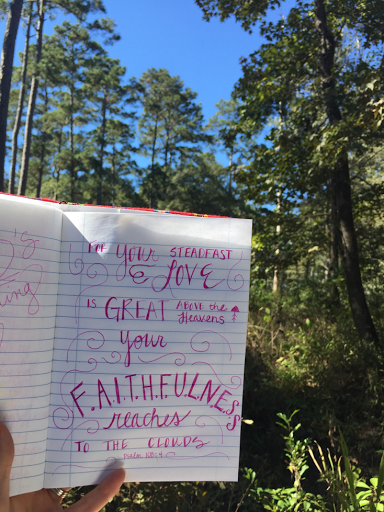 FOR your STEADFAST
LOVE
IS GREAT ABOVE the
Heavens
your
F.A.I.T.H.F.U.L.N.E.S.S
reaches
TO THE CLOUDS
PSALM 108:4